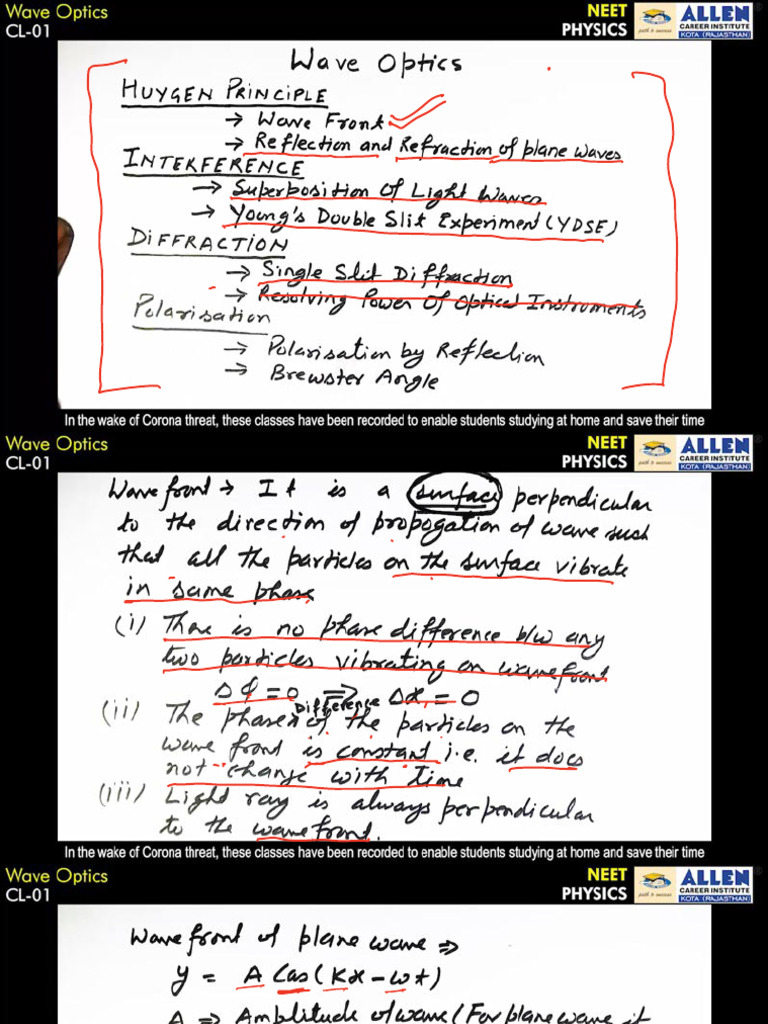 Wave Optics
CL-01
NEET
PHYSICS
path to success
ALLEN
CAREER INSTITUTE
KOTA (RAJASTHAN)
Wave Optics
HUYGEN PRINCIPLE
→ Wave Front
→ Reflection and Refraction of plane waves
INTERFERENCE
→ Superposition Of Light Waves
→ Young's Double Slit Experiment (YDSE)
DIFFRACTION
→ Single Slit Diffraction
→ Resolving Power Of Optical Instruments
Polarisation
→ Polarisation by Reflection
→ Brewster Angle
In the wake of Corona threat, these classes have been recorded to enable students studying at home and save their time
Wave Optics
CL-01
NEET
PHYSICS
path to success
ALLEN
CAREER INSTITUTE
KOTA (RAJASTHAN)
Wave front → It is a surface perpendicular
to the direction of propogation of wave such
that all the particles on the surface vibrate
in same phase
(i) There is no phase difference b/w any
two particles vibrating on wavefront
Δφ = 0 ⇒ Δx = 0
(ii) The phase Difference of the particles on the
wave front is constant i.e. it does
not change with time
(iii) Light ray is always perpendicular
to the wavefront.
In the wake of Corona threat, these classes have been recorded to enable students studying at home and save their time
Wave Optics
CL-01
NEET
PHYSICS
path to success
ALLEN
CAREER INSTITUTE
KOTA (RAJASTHAN)
Wavefront of plane wave ⇒
y = A Cos(Kx - ωt)
A ⇒ Amplitude of wave (For plane wave it